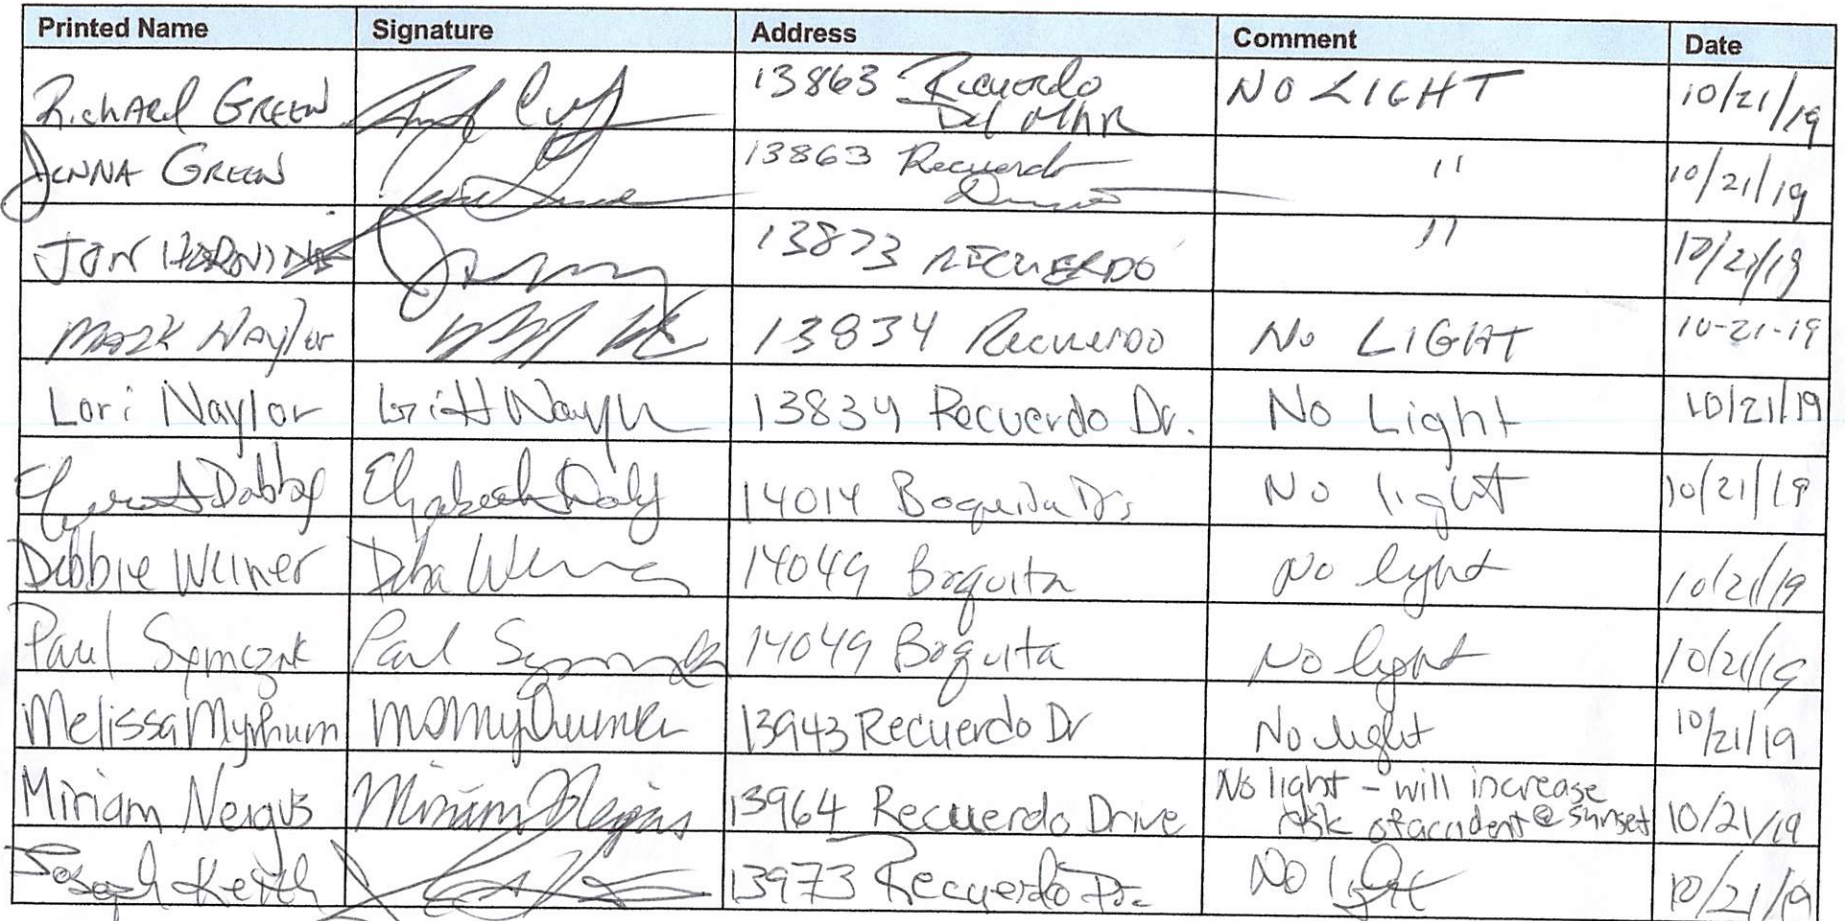 Printed Name Signature Address Comment Date
Richard GREEN 13863 Recuerdo Del MAR NO LIGHT 10/21/19
JENNA GREEN 13863 Recuerdo " 10/21/19
JON 13873 RECUERDO " 10/21/19
MARK Naylor 13834 Recuerdo No LIGHT 10-21-19
Lori Naylor 13834 Recuerdo Dr. No Light 10/21/19
Elizabeth 14014 Boquita Dr. No light 10/21/19
Debbie Weiner 14049 Boquita No light 10/21/19
Paul Symczak Paul 14049 Boquita No light 10/21/19
Melissa 13943 Recuerdo Dr No light 10/21/19
Miriam Neigus Miriam Neigus 13964 Recuerdo Drive No light - will increase
risk of accident @ sunset 10/21/19
Joseph Keith 13973 Recuerdo Dr. No light 10/21/19